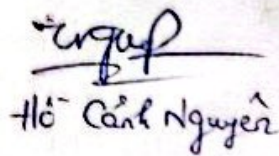 Hồ Cảnh Nguyên